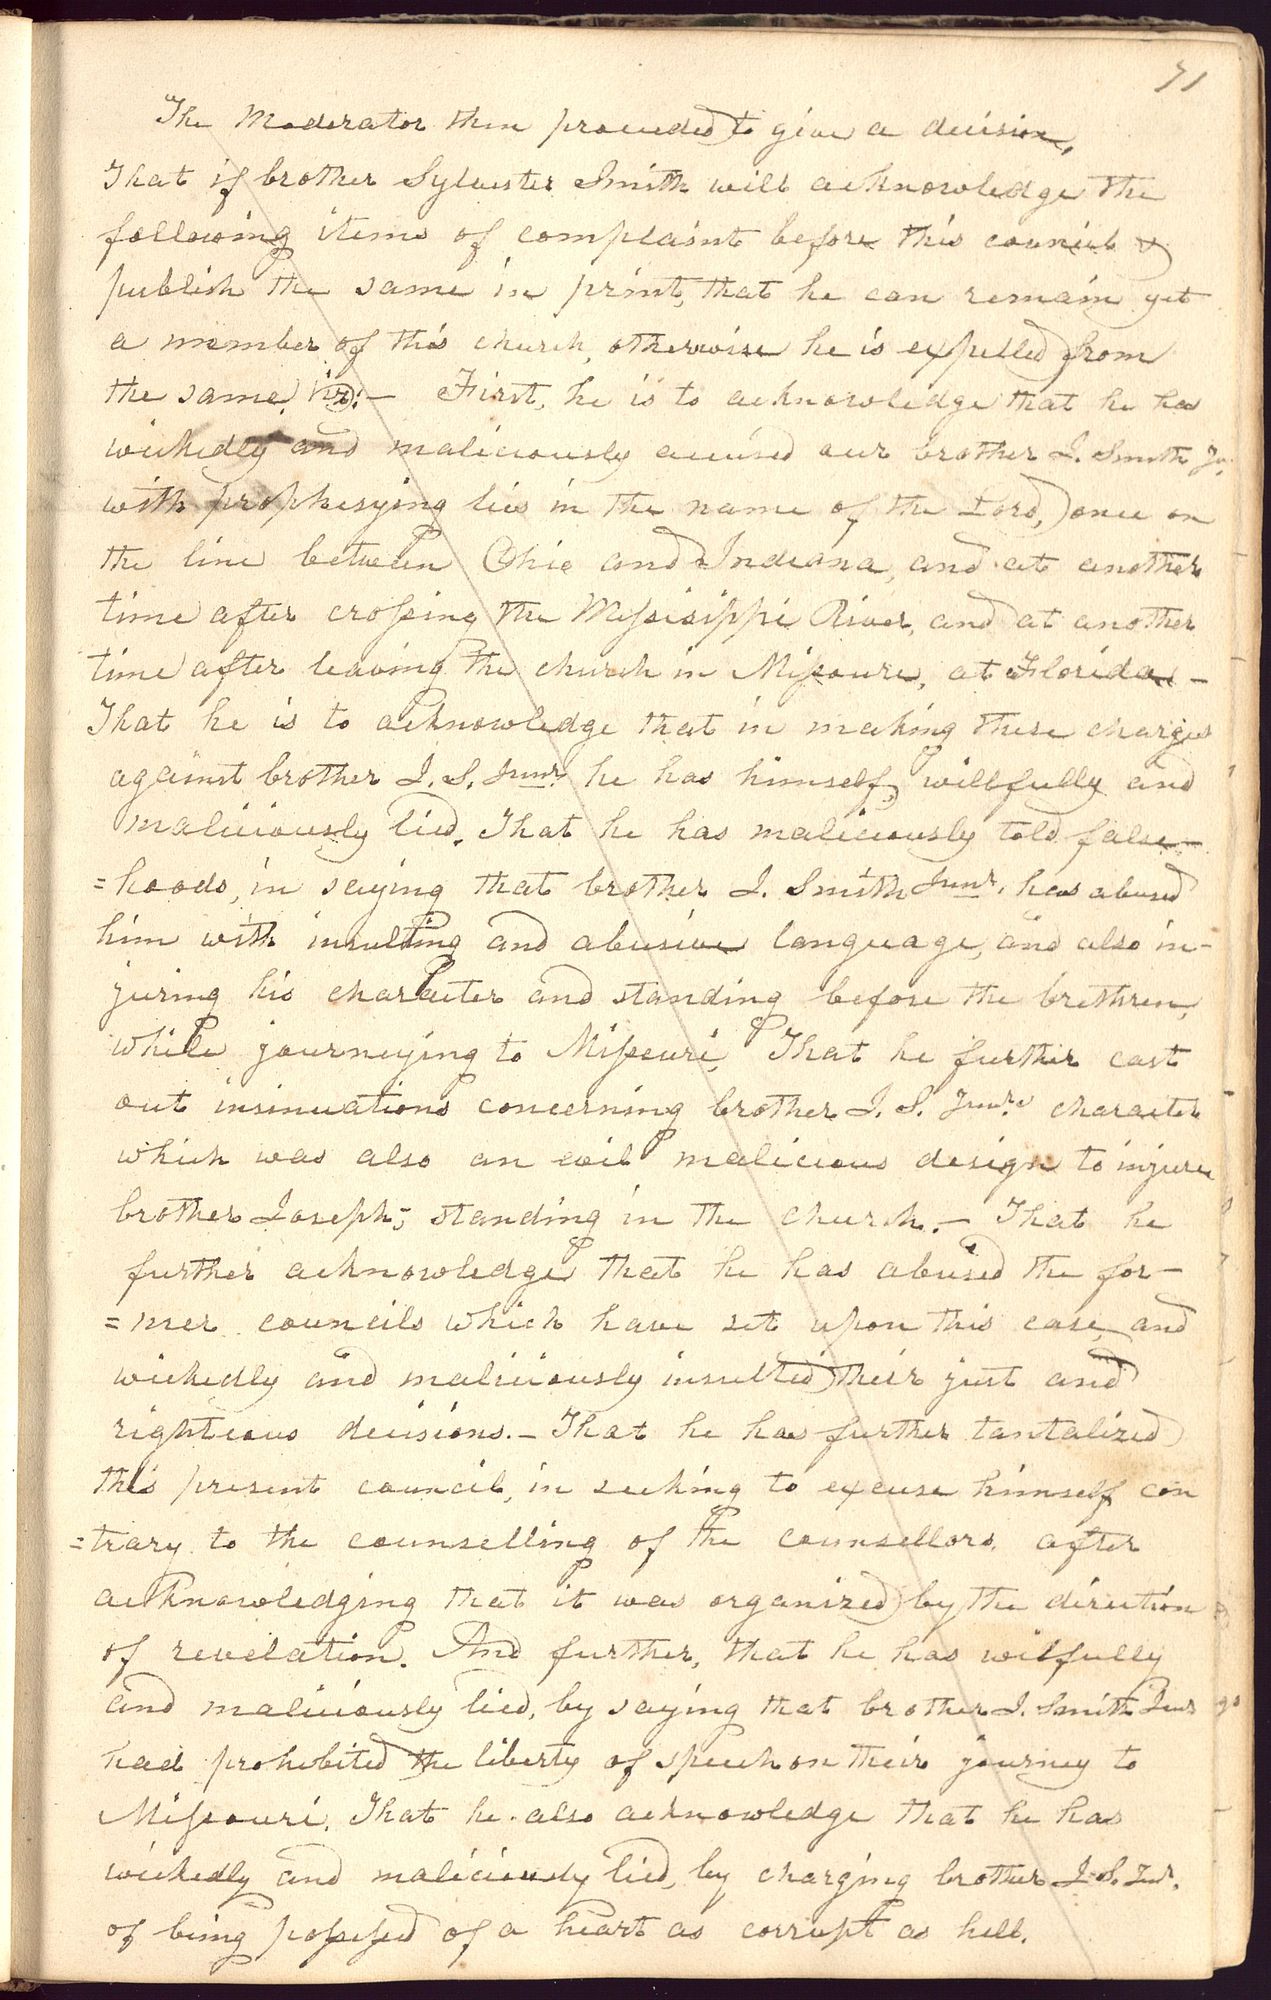 71
The Moderator then proceeded to give a decision,
That if brother Sylvester Smith will acknowledge the
following items of complaint before this council &
publish the same in print, that he can remain yet
a member of this church, otherwise he is expelled from
the same, viz:— First, he is to acknowledge that he has
wickedly and maliciously accused our brother J. Smith Jr.
with prophesying lies in the name of the Lord, once on
the line between Ohio and Indiana, and at another
time after crossing the Missisippi River, and at another
time after leaving the church in Missouri, at Florida —
That he is to acknowledge that in making these charges
against brother J. S. Junr. he has himself, willfully and
maliciously lied. That he has maliciously told false-
=hoods, in saying that brother J. Smith Junr. has abused
him with insulting and abusive language, and also in-
juring his character and standing before the brethren,
while journeying to Missouri, That he further cast
out insinuations concerning brother J. S. Junrs character
which was also an evil malicious design to injure
brother Joseph's standing in the church.— That he
further acknowledge that he has abused the for-
=mer councils which have set upon this case, and
wickedly and maliciously insulted their just and
righteous decisions.— That he has further tantalized
this present council, in seeking to excuse himself con
=trary to the counselling of the counsellors, after
acknowledging that it was organized by the direction
of revelation. And further, that he has wilfully
and maliciously lied, by saying that brother J. Smith Junr
had prohibited the liberty of speech on their journey to
Missouri. That he also acknowledge that he has
wickedly and maliciously lied, by charging brother J. S. Jur.
of being possessed of a heart as corrupt as hell.